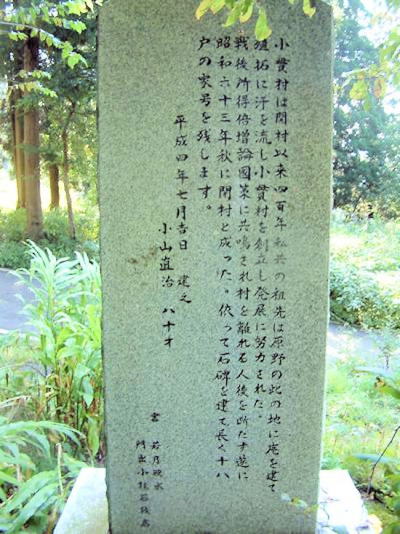 小貫村は開村以来四百年私共の祖先は原野の此の地に庵を建て
拓に汗を流し小貫村を創立し発展に努力された。
戦後所得倍増論國策に共鳴され村を離れる人後を断たず遂に
昭和六十三年秋に閉村と成った。依って石碑を建て長く十八
戸の家号を残します。
平成四年七月吉日 建之
小山直治 八十才
書